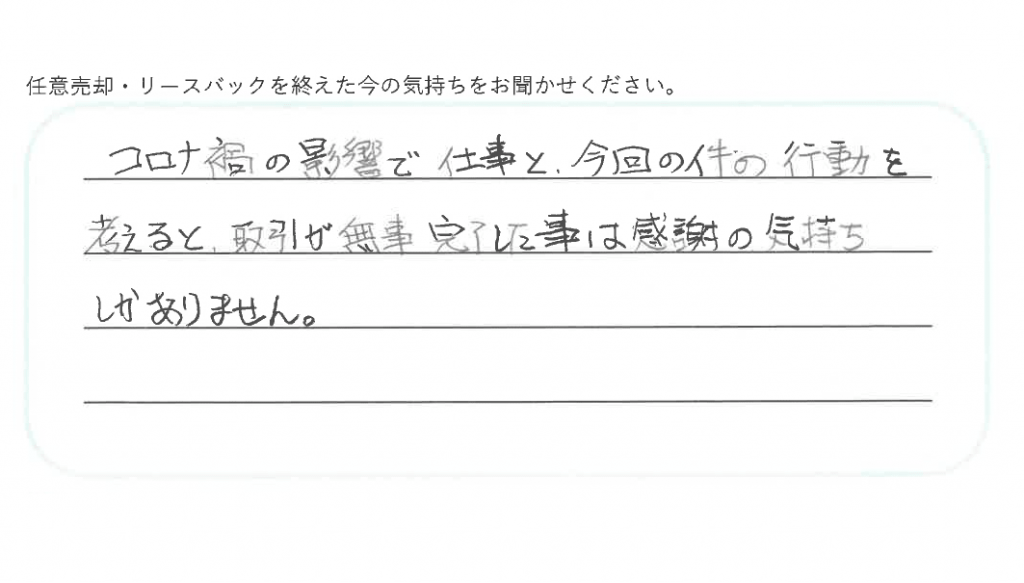 任意売却・リースバックを終えた今の気持ちをお聞かせください。
コロナ禍の影響で仕事と、今回の件の行動を
考えると、取引が無事完了した事は感謝の気持ち
しかありません。